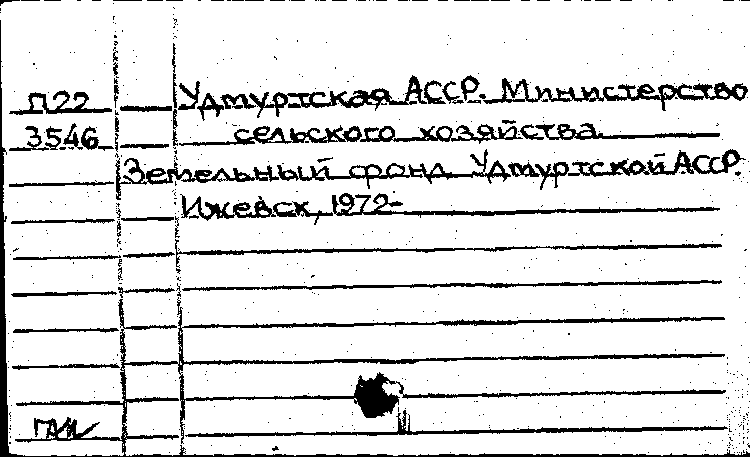 П22 Удмуртская АССР. Министерство
3546 сельского хозяйства.
Земельный фонд Удмуртской АССР.
Ижевск, 1972-